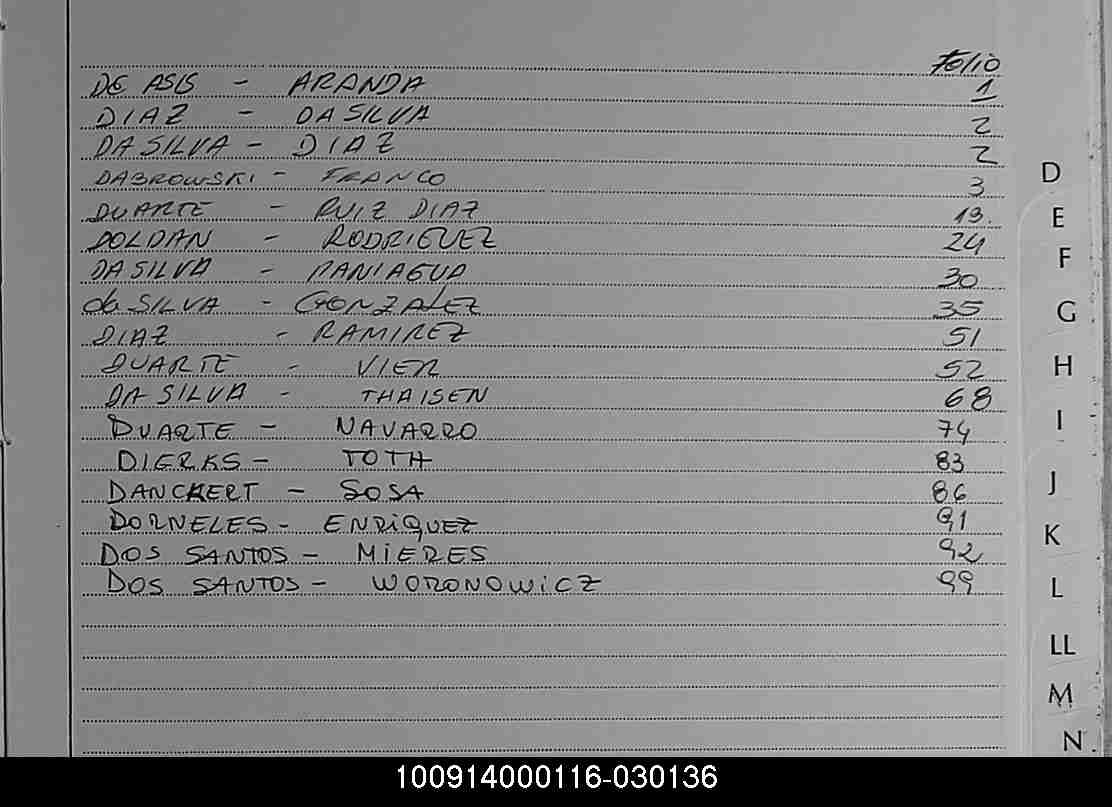 Folio
DE ASIS - ARANDA 1
DIAZ - DA SILVA 2
DA SILVA - DIAZ 2
DABROWSKI - FRANCO 3
DUARTE - RUIZ DIAZ 19.
DOLDAN - RODRIGUEZ 24
DA SILVA - PANIAGUA 30
da SILVA - GONZALEZ 35
DIAZ - RAMIREZ 51
DUARTE - VIER 52
DA SILVA - THAISEN 68
DUARTE - NAVARRO 74
DIERKS - TOTH 83
DANCKERT - SOSA 86
DORNELES - ENRiQUEZ 91
DOS SANTOS - MiERES 92
DOS SANTOS - WORONOWiCZ 99
D
E
F
G
H
I
J
K
L
LL
M
N
100914000116-030136